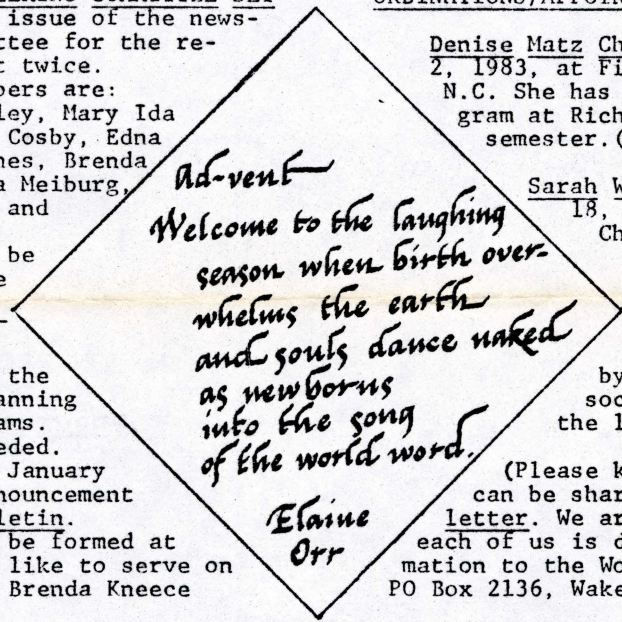 COMMITTEE SET
issue of the news-
ttee for the re-
t twice.
bers are:
ley, Mary Ida
Cosby, Edna
nes, Brenda
a Meiburg,
and
be
e
the
anning
ams.
eded.
January
nouncement
letin.
be formed at
like to serve on
Brenda Kneece
Ad-vent
Welcome to the laughing
season when birth over-
whelms the earth
and souls dance naked
as newborns
into the song
of the world word.
Elaine
Orr
ORDINATIONS/APPOIN
Denise Matz Ch
2, 1983, at Fi
N.C. She has
gram at Rich
semester.(
Sarah W
18,
Ch
by
soc
the l
(Please k
can be shar
letter. We ar
each of us is d
mation to the Wo
PO Box 2136, Wake